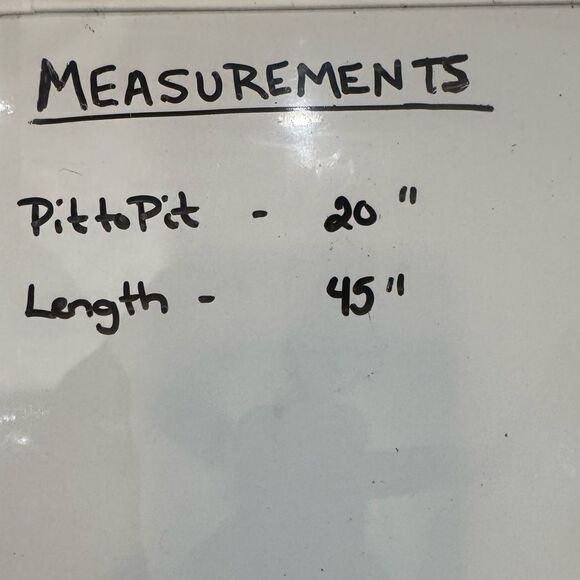 MEASUREMENTS
Pit to Pit - 20"
Length - 45"